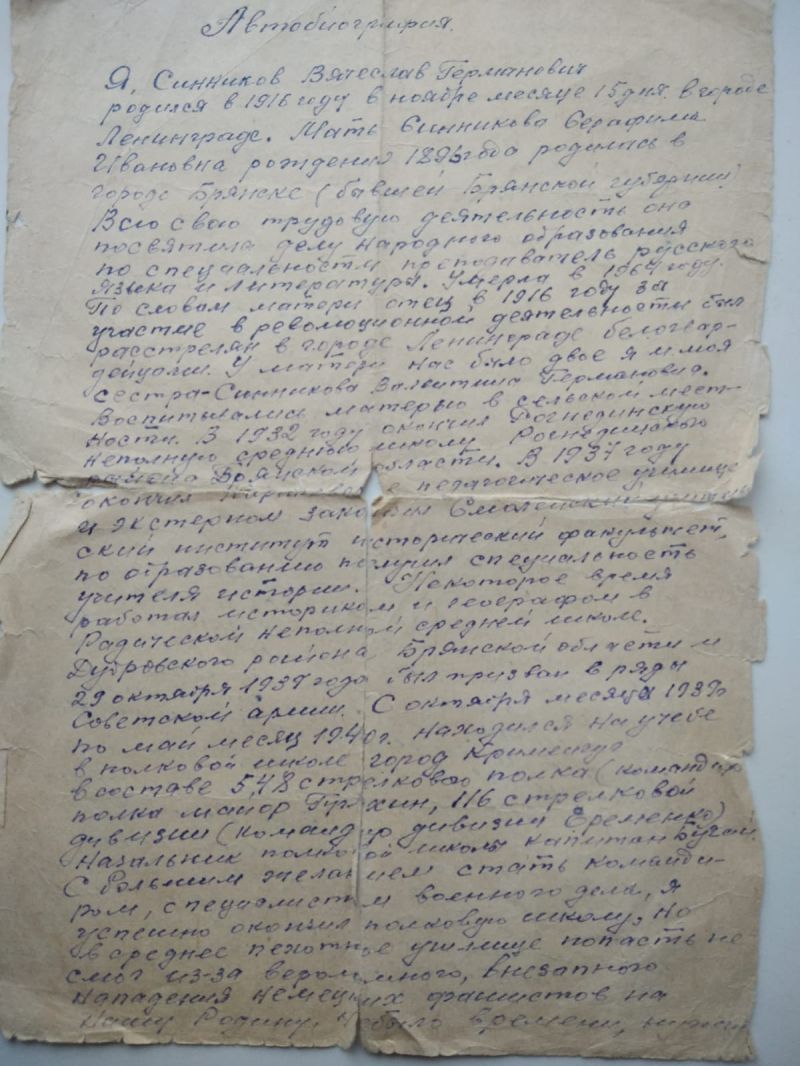 Автобиография.
Я, Синников Вячеслав Германович
родился в 1916 году в ноябре месяце 15 дня в городе
Ленинграде. Мать Синникова Серафима
Ивановна рождения года родилась в
городе Брянске (бывшей Брянской губернии)
Всю свою трудовую деятельность она
посвятила делу народного образования
по специальности преподаватель русского
языка и литературы. Умерла в 1964 году.
По словам матери отец в 1916 году за
участие в революционной деятельности был
расстрелян в городе Ленинграде белогвар-
дейцами. У матери нас было двое я и моя
сестра-Синникова Валентина Германовна.
Воспитывались матерью в сельской мест-
ности. В 1932 году окончил Рогнединскую
неполную среднюю школу Рогнединского
района Брянской области. В 1937 году
окончил педагогическое училище
и экстерном закончил Смоленский
ский институт исторический факультет,
по образованию получил специальность
учителя истории. Некоторое время
работал историком и географом в
Радической неполной средней школе.
Дубровского района Брянской области и
29 октября 1939 года был призван в ряды
Советской армии. С октября месяца 1939г
по май месяц 1940г. находился на учебе
в полковой школе город Кременчуг
в составе 548 стрелкового полка (командир
полка майор 116 стрелковой
дивизии (командир дивизии Еременко)
Начальник полковой школы капитан Бугай.
С большим желанием стать команди-
ром, специалистом военного дела, я
успешно окончил полковую школу, но
в среднее пехотное училище попасть не
смог из-за вероломного, внезапного
нападения немецких фашистов на
Нашу Родину, не было времени,